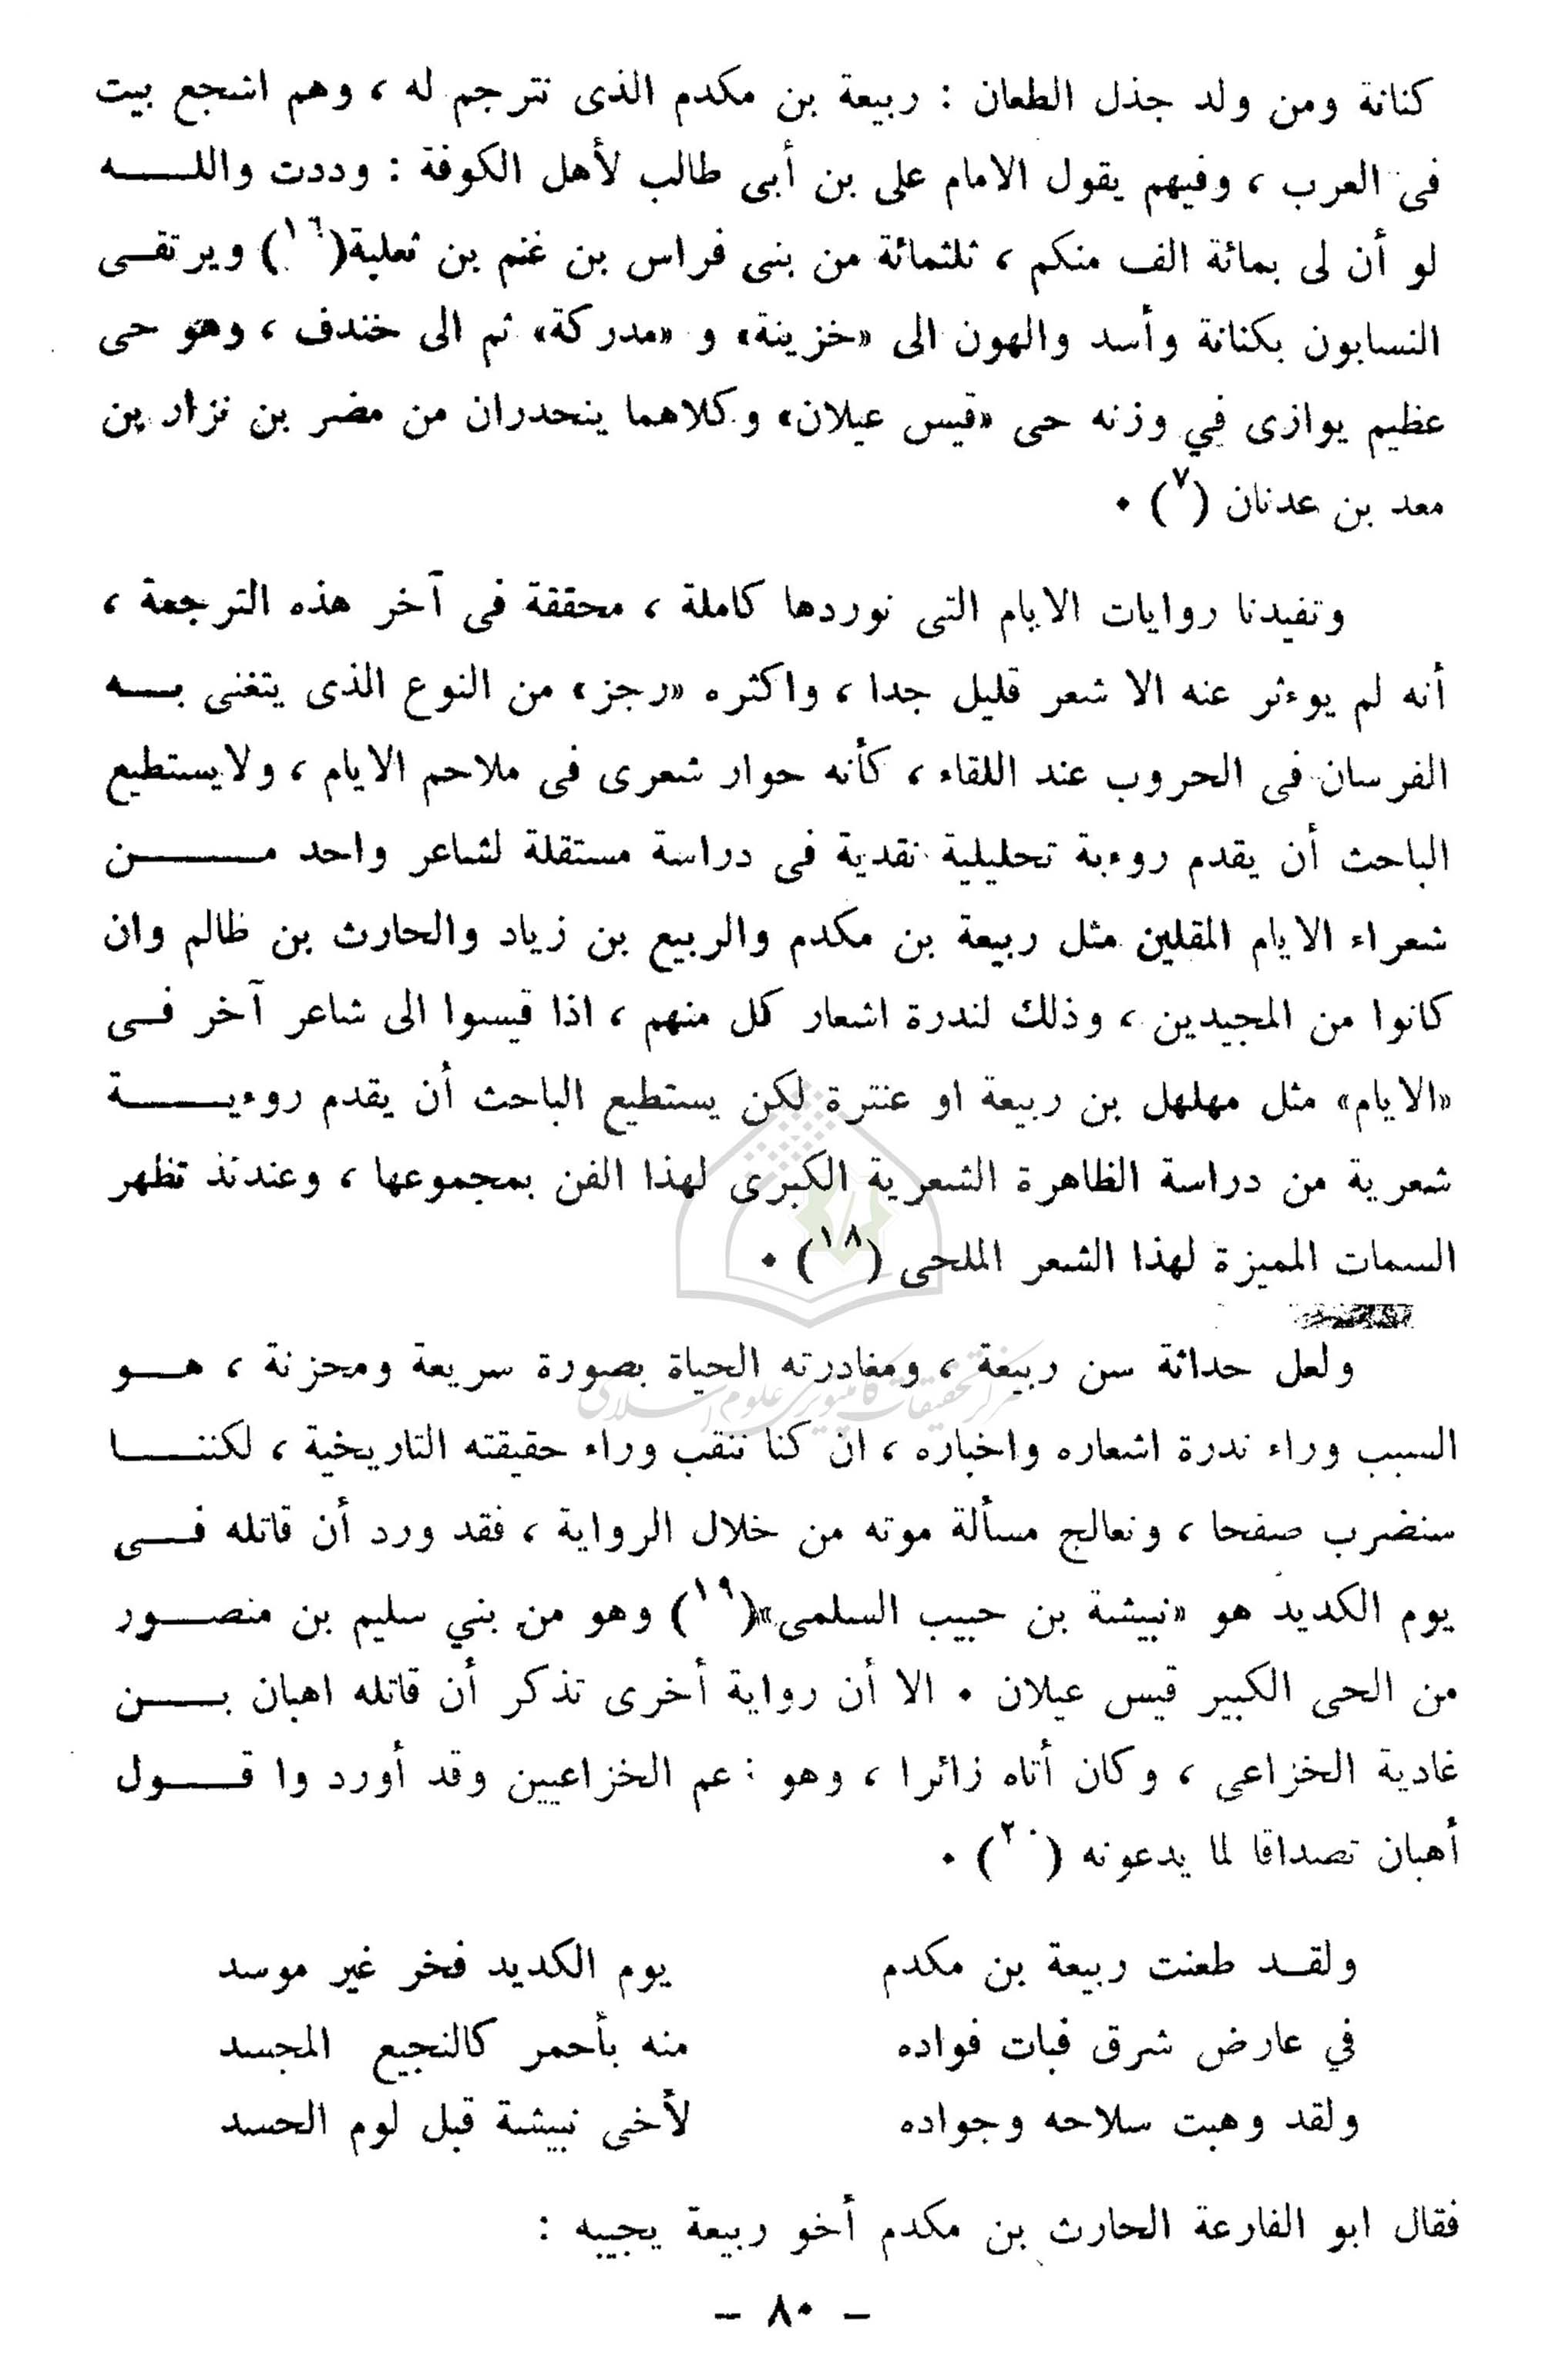 كنانة ومن ولد جذل الطعان : ربيعة بن مكدم الذى نترجم له ، وهم اشجع بيت
فى العرب ، وفيهم يقول الامام على بن أبى طالب لأهل الكوفة : وددت واللـــه
لو أن لى بمائة الف منكم ، ثلثمائة من بنى فراس بن غنم بن ثعلبة(١٦) ويرتقـى
النسابون بكنانة وأسد والهون الى «خزينة» و «مدركة» ثم الى خندف ، وهو حى
عظيم يوازى في وزنه حى «قيس عيلان» وكلاهما ينحدران من مضر بن نزار بن
معد بن عدنان (٧) ٠
وتفيدنا روايات الايام التى نوردها كاملة ، محققة فى آخر هذه الترجمة ،
أنه لم يوءثر عنه الا شعر قليل جدا ، واكثره «رجز» من النوع الذى يتغنى بــه
الفرسان فى الحروب عند اللقاء ، كأنه حوار شعرى فى ملاحم الايام ، ولايستطيع
الباحث أن يقدم روءية تحليلية نقدية فى دراسة مستقلة لشاعر واحد مــــن
شعراء الايام المقلين مثل ربيعة بن مكدم والربيع بن زياد والحارث بن ظالم وان
كانوا من المجيدين ، وذلك لندرة اشعار كل منهم ، اذا قيسوا الى شاعر آخر فـى
«الايام» مثل مهلهل بن ربيعة او عنترة لكن يستطيع الباحث أن يقدم روءيـــة
شعرية من دراسة الظاهرة الشعرية الكبرى لهذا الفن بمجموعها ، وعندئذ تظهر
السمات المميزة لهذا الشعر الملحى (١٨) ٠
ولعل حداثة سن ربيعة ، ومغادرته الحياة بصورة سريعة ومحزنة ، هــو
السبب وراء ندرة اشعاره واخباره ، ان كنا ننقب وراء حقيقته التاريخية ، لكننــا
سنضرب صفحا ، ونعالج مسألة موته من خلال الرواية ، فقد ورد أن قاتله فــى
يوم الكديد هو «نبيشة بن حبيب السلمى»(١٩) وهو من بني سليم بن منصــور
من الحى الكبير قيس عيلان ٠ الا أن رواية أخرى تذكر أن قاتله اهبان بــن
غادية الخزاعى ، وكان أتاه زائرا ، وهو : عم الخزاعيين وقد أورد وا قــول
أهبان تصداقا لما يدعونه (٢٠) ٠
ولقـد طعنت ربيعة بن مكدم يوم الكديد فخر غير موسد
في عارض شرق فبات فواده منه بأحمر كالنجيع المجسد
ولقد وهبت سلاحه وجواده لأخى نبيشة قبل لوم الحسد
فقال ابو الفارعة الحارث بن مكدم أخو ربيعة يجيبه :
– ٨٠ –
مركز تحقيقات كامپيوترى علوم اسلامى